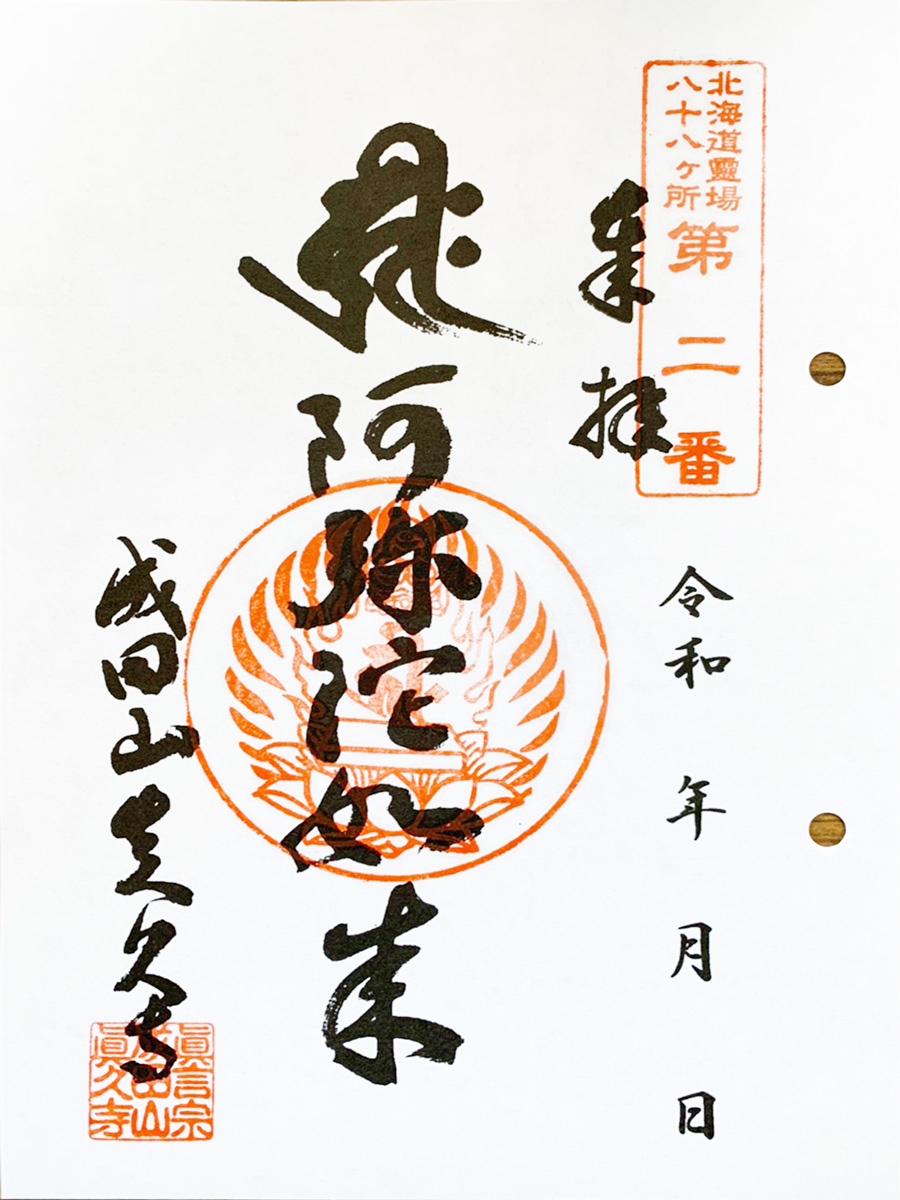 北海道靈場
八十八ヶ所
第二番
奉拝
令和 年 月 日
阿弥陀如来
成田山真久寺
眞言宗
成田山
眞久寺